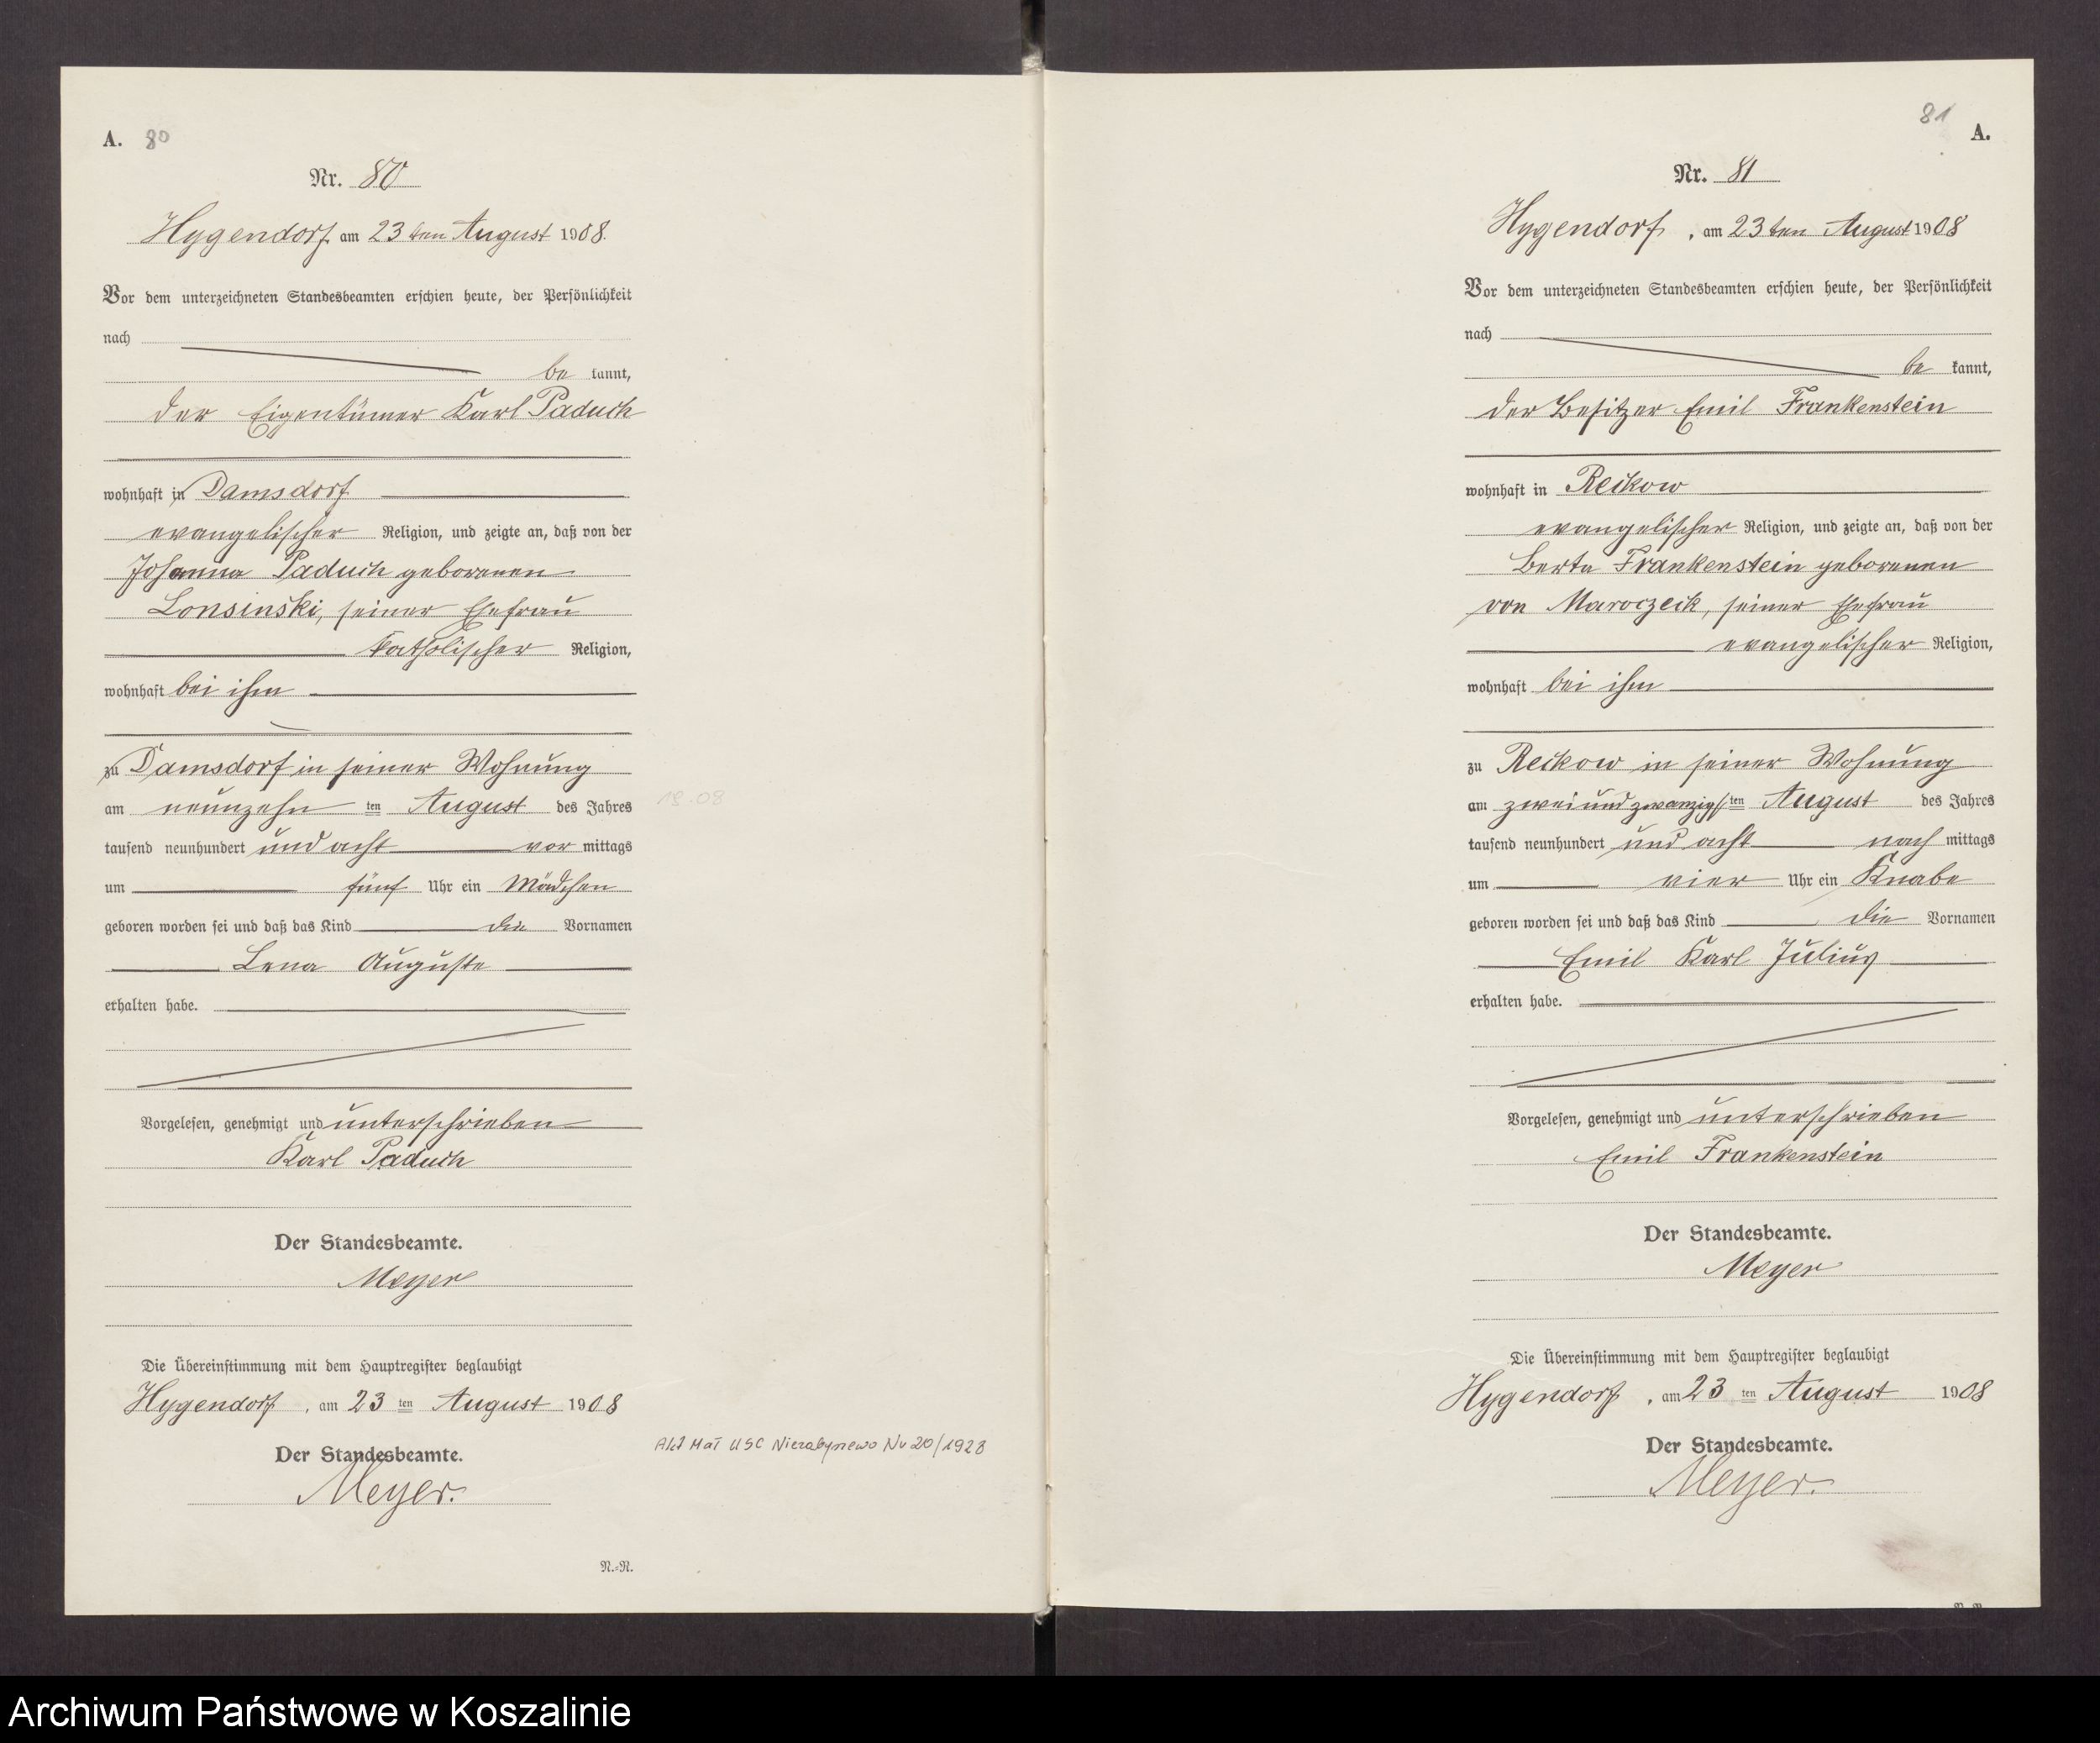 A. 80
Nr. 80
Hygendorf am 23ten August 1908.
Vor dem unterzeichneten Standesbeamten erschien heute, der Persönlichkeit
nach
be kannt,
der Eigentümer Karl Paduch
wohnhaft in Damsdorf
evangelischer Religion, und zeigte an, daß von der
Johanna Paduch geborenen
Lonsinski, seiner Ehefrau
katholischer Religion,
wohnhaft bei ihm
zu Damsdorf in seiner Wohnung
am neunzehn ten August des Jahres
tausend neunhundert und acht vor mittags
um fünf Uhr ein Mädchen
geboren worden sei und daß das Kind die Vornamen
Lena Auguste
erhalten habe.
Vorgelesen, genehmigt und unterschrieben
Karl Paduch
Der Standesbeamte.
Meyer
Die Übereinstimmung mit dem Hauptregister beglaubigt
Hygendorf, am 23 ten August 1908
Der Standesbeamte.
Meyer.
N.=N.
19.08
Akt Mał USC Nr 20/1928
81
A.
Nr. 81
Hygendorf, am 23ten August 1908
Vor dem unterzeichneten Standesbeamten erschien heute, der Persönlichkeit
nach
be kannt,
der Besitzer Emil Frankenstein
wohnhaft in Reckow
evangelischer Religion, und zeigte an, daß von der
Berta Frankenstein geborenen
von Maroczeck, seiner Ehefrau
evangelischer Religion,
wohnhaft bei ihm
zu Reckow in seiner Wohnung
am zweiundzwanzigs ten August des Jahres
tausend neunhundert und acht nach mittags
um vier Uhr ein Knabe
geboren worden sei und daß das Kind die Vornamen
Emil Karl Julius
erhalten habe.
Vorgelesen, genehmigt und unterschrieben
Emil Frankenstein
Der Standesbeamte.
Meyer
Die Übereinstimmung mit dem Hauptregister beglaubigt
Hygendorf, am 23 ten August 1908
Der Standesbeamte.
Meyer.
Archiwum Państwowe w Koszalinie